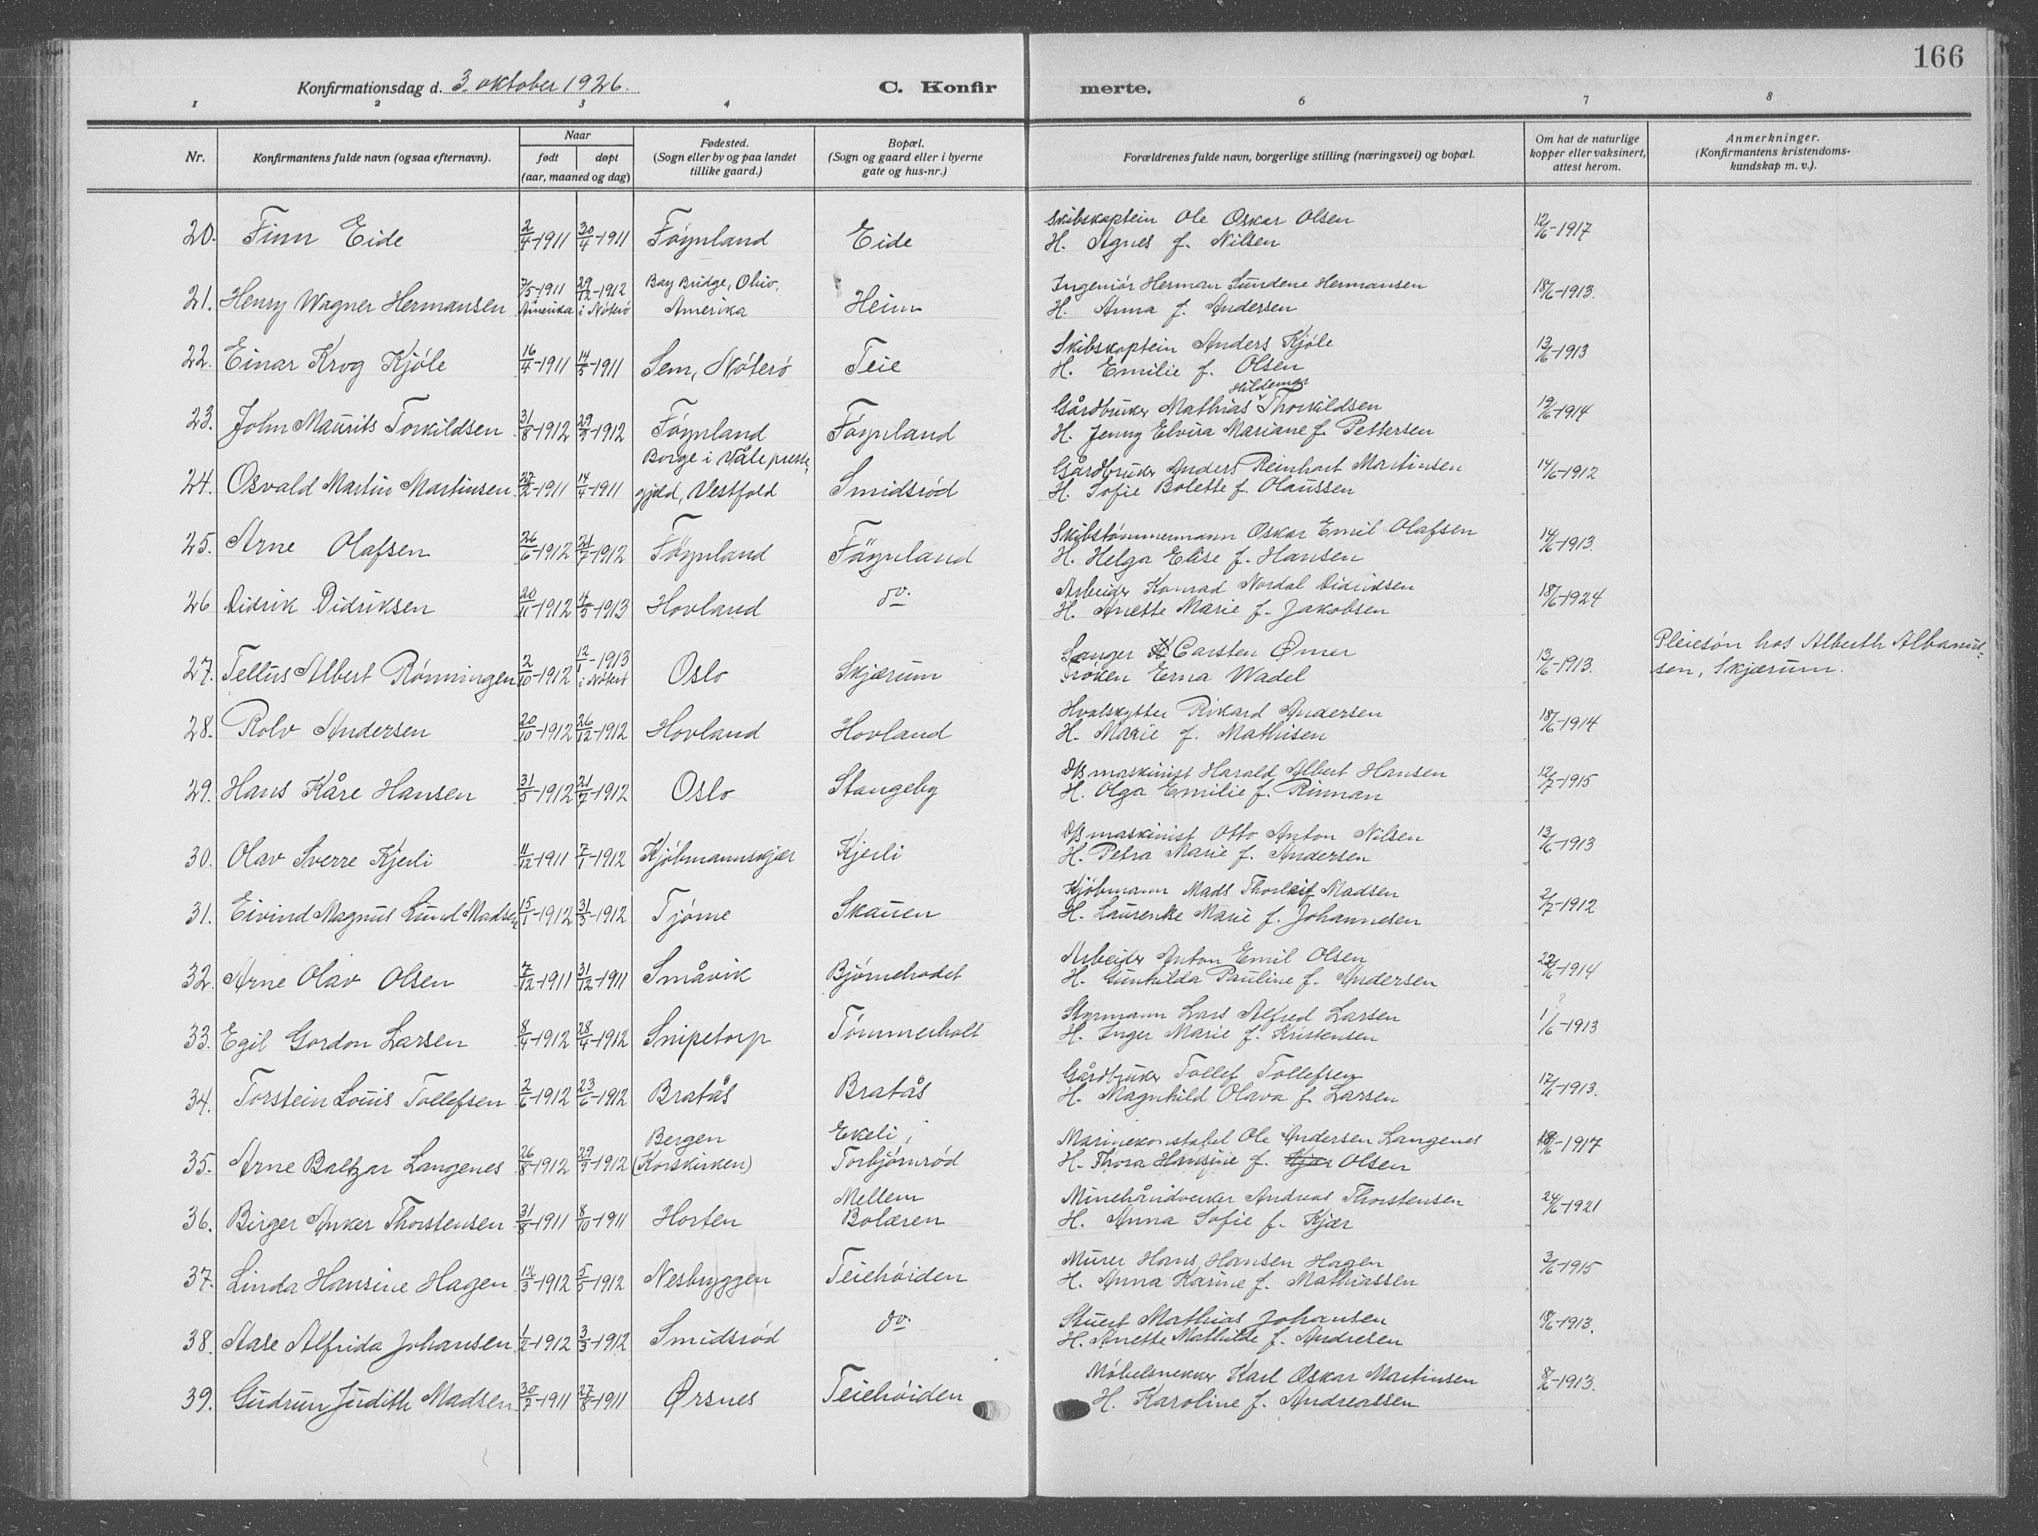 166
Konfirmationsdag d. 3. oktober 1926.
C. Konfir merte.
1 2 3 4 6 7 8
Nr.
Konfirmantens fulde navn (ogsaa efternavn).
Naar
født døpt
(aar, maaned og dag)
Fødested.
(Sogn eller by og paa landet
tillike gaard.)
Bopæl.
(Sogn og gaard eller i byerne
gate og hus-nr.)
Forældrenes fulde navn, borgerlige stilling (næringsvei) og bopæl.
Om hat de naturlige
kopper eller vaksinert,
attest herom.
Anmerkninger.
(Konfirmantens kristendoms-
kundskap m. v.).
20. Finn Eide 2/4-1911 30/4-1911 Føynland Eide
Skibskaptein Ole Oskar Olsen
H. Agnes f. Nilsen 12/6-1917
21. Henry Wagner Hermansen 7/5-1911 Amerika 29/12-1912 i Nøterø
Bay Bridge, Ohio,
Amerika Heim
Ingeniør Herman Sundene Hermansen
H. Anna f. Andersen 18/6-1913.
22. Einar Krog Kjøle 16/4-1911 14/5-1911 Sem, Nøterø Teie
Skibskaptein Anders Kjøle
H. Emilie f. Olsen 13/6-1913
23. John Maurits Torkildsen 31/8-1912 29/9-1912 Føynland Føynland
Gårdbruker Mathias Hildemar Thorkildsen
H. Jenny Elvira Mariane f. Pettersen 19/6-1914
24. Osvald Martin Martinsen 14/4-1911
Borge i Våle preste-
gjeld, Vestfold Smidsrød
Gårdbruker Anders Reinhart Martinsen
H. Sofie Bolette f. Olaussen 14/6-1912
25. Arne Olafsen 26/6-1912 21/7-1912 Føynland Føynland
Skibstømmermann Oskar Emil Olafsen
H. Helga Elise f. Hansen 14/6-1913.
26 Didrik Didriksen 20/11-1912 4/5-1913 Hovland do.
Arbeider Konrad Nordal Didriksen
H. Anette Marie f. Jakobsen 18/6-1924
27. Tellus Albert Rønningen 2/10-1912 12/1-1913 i Nøterø Oslo Skjærum
Sanger Carsten Ømer
Frøken Erna Wadel 13/6-1913.
Pleiesøn hos Alberth Albanus-
sen, Skjærum.
28. Rolv Andersen 20/10-1912 26/12-1912 Hovland Hovland
Hvalskytter Rikard Andersen
H. Marie f. Mathisen 18/6-1914
29. Hans Kåre Hansen 31/5-1912 21/7-1912 Oslo Stangeby
D/S maskinist Harald Albert Hansen
H. Olga Emilie f. Rinnan 12/7-1915
30. Olav Sverre Kjerli 11/12-1911 7/1-1912 Kjøbmannskjær Kjerli
D/S maskinist Otto Anton Nilsen
H. Petra Marie f. Andersen 13/6-1913
31. Eivind Magnus Lund Madsen 15/1-1912 31/3-1912 Tjøme Skauen
Kjøbmann Mads Thorleif Madsen
H. Laurenke Marie f. Johannesen 2/7-1912
32. Arne Olav Olsen 7/12-1911 31/12-1911 Småvik Bjørnehodet
Arbeider Anton Emil Olsen
H. Gunhilda Pauline f. Andersen 22/6-1914
33. Egil Gordon Larsen 8/4-1912 28/4-1912 Snipetorp Tømmerholt
Styrmann Lars Alfred Larsen
H. Inger Marie f. Kristensen 1/6-1913
34. Torstein Louis Tollefsen 2/6-1912 23/6-1912 Bratås Bratås
Gårdbruker Tollef Tollefsen
H. Magnhild Olava f. Larsen 12/6-1913.
35. Arne Baltzar Langenes 26/8-1912 29/9-1912
Bergen
(Korskirken)
Ekeli,
Torbjørnrød
Marinekonstabel Ole Andersen Langenes
H. Thora Hansine f. Kjær Olsen 18/6-1917
36. Birger Anker Thorstensen 31/8-1911 8/10-1911 Horten
Mellem
Bolæren
Minehåndverker Andreas Thorstensen
H. Anna Sofie f. Kjær 24/6-1921
37. Linda Hansine Hagen 12/3-1912 5/5-1912 Nesbryggen Teiehøiden
Murer Hans Hansen Hagen
H. Anna Karine f. Mathiassen 3/6-1915
38. Aase Alfrida Johansen 1/2-1912 3/3-1912 Smidsrød do.
Stuert Mathias Johansen
H. Anette Mathilde f. Andresen 18/6-1913.
39. Gudrun Judith Madsen 30/7-1911 27/8-1911 Ørsnes Teiehøiden
Møbelsnekker Karl Oskar Martinsen
H. Karoline f. Andreassen -1913.